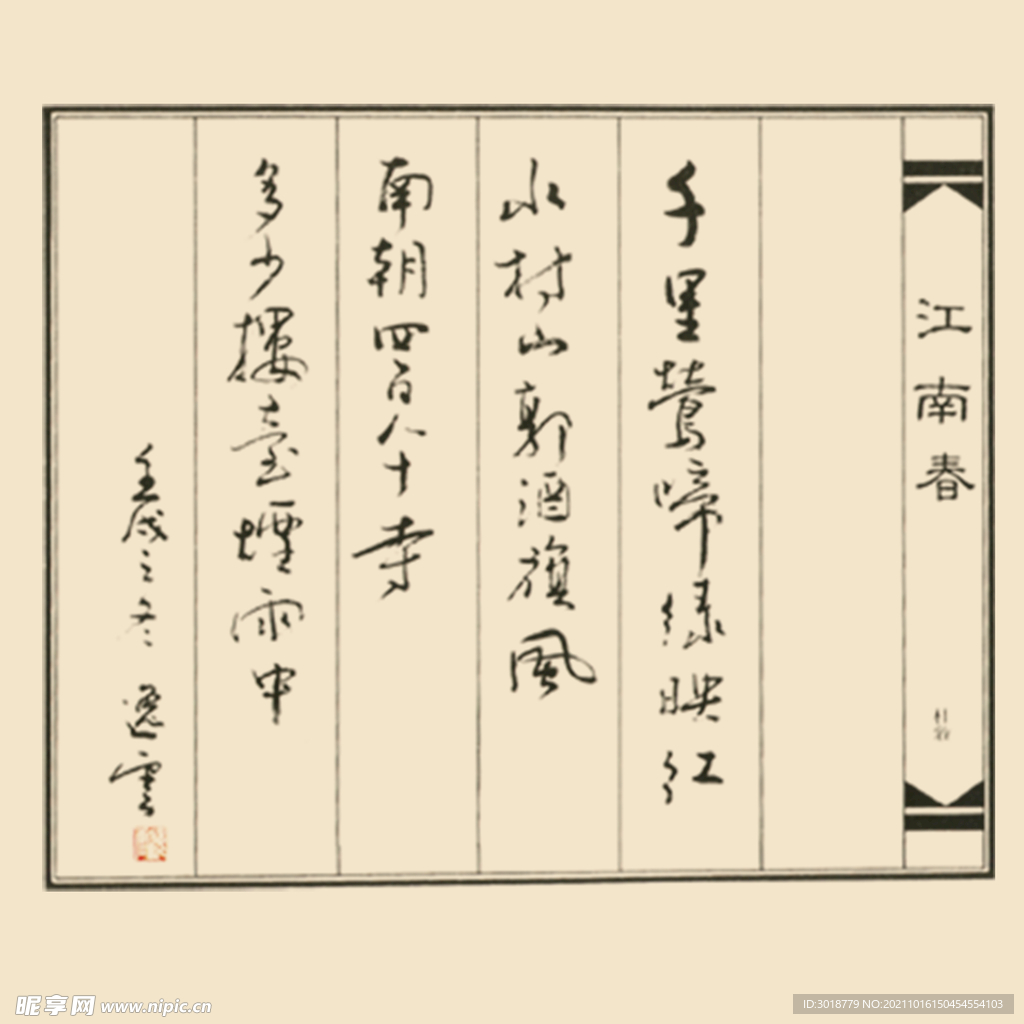 江南春
杜牧
千里鶯啼绿映红
水村山郭酒旗風
南朝四百八十寺
多少樓臺煙雨中
壬戌之冬 逸雲
昵享网 www.nipic.cn
ID:3018779 NO:20211016150454554103